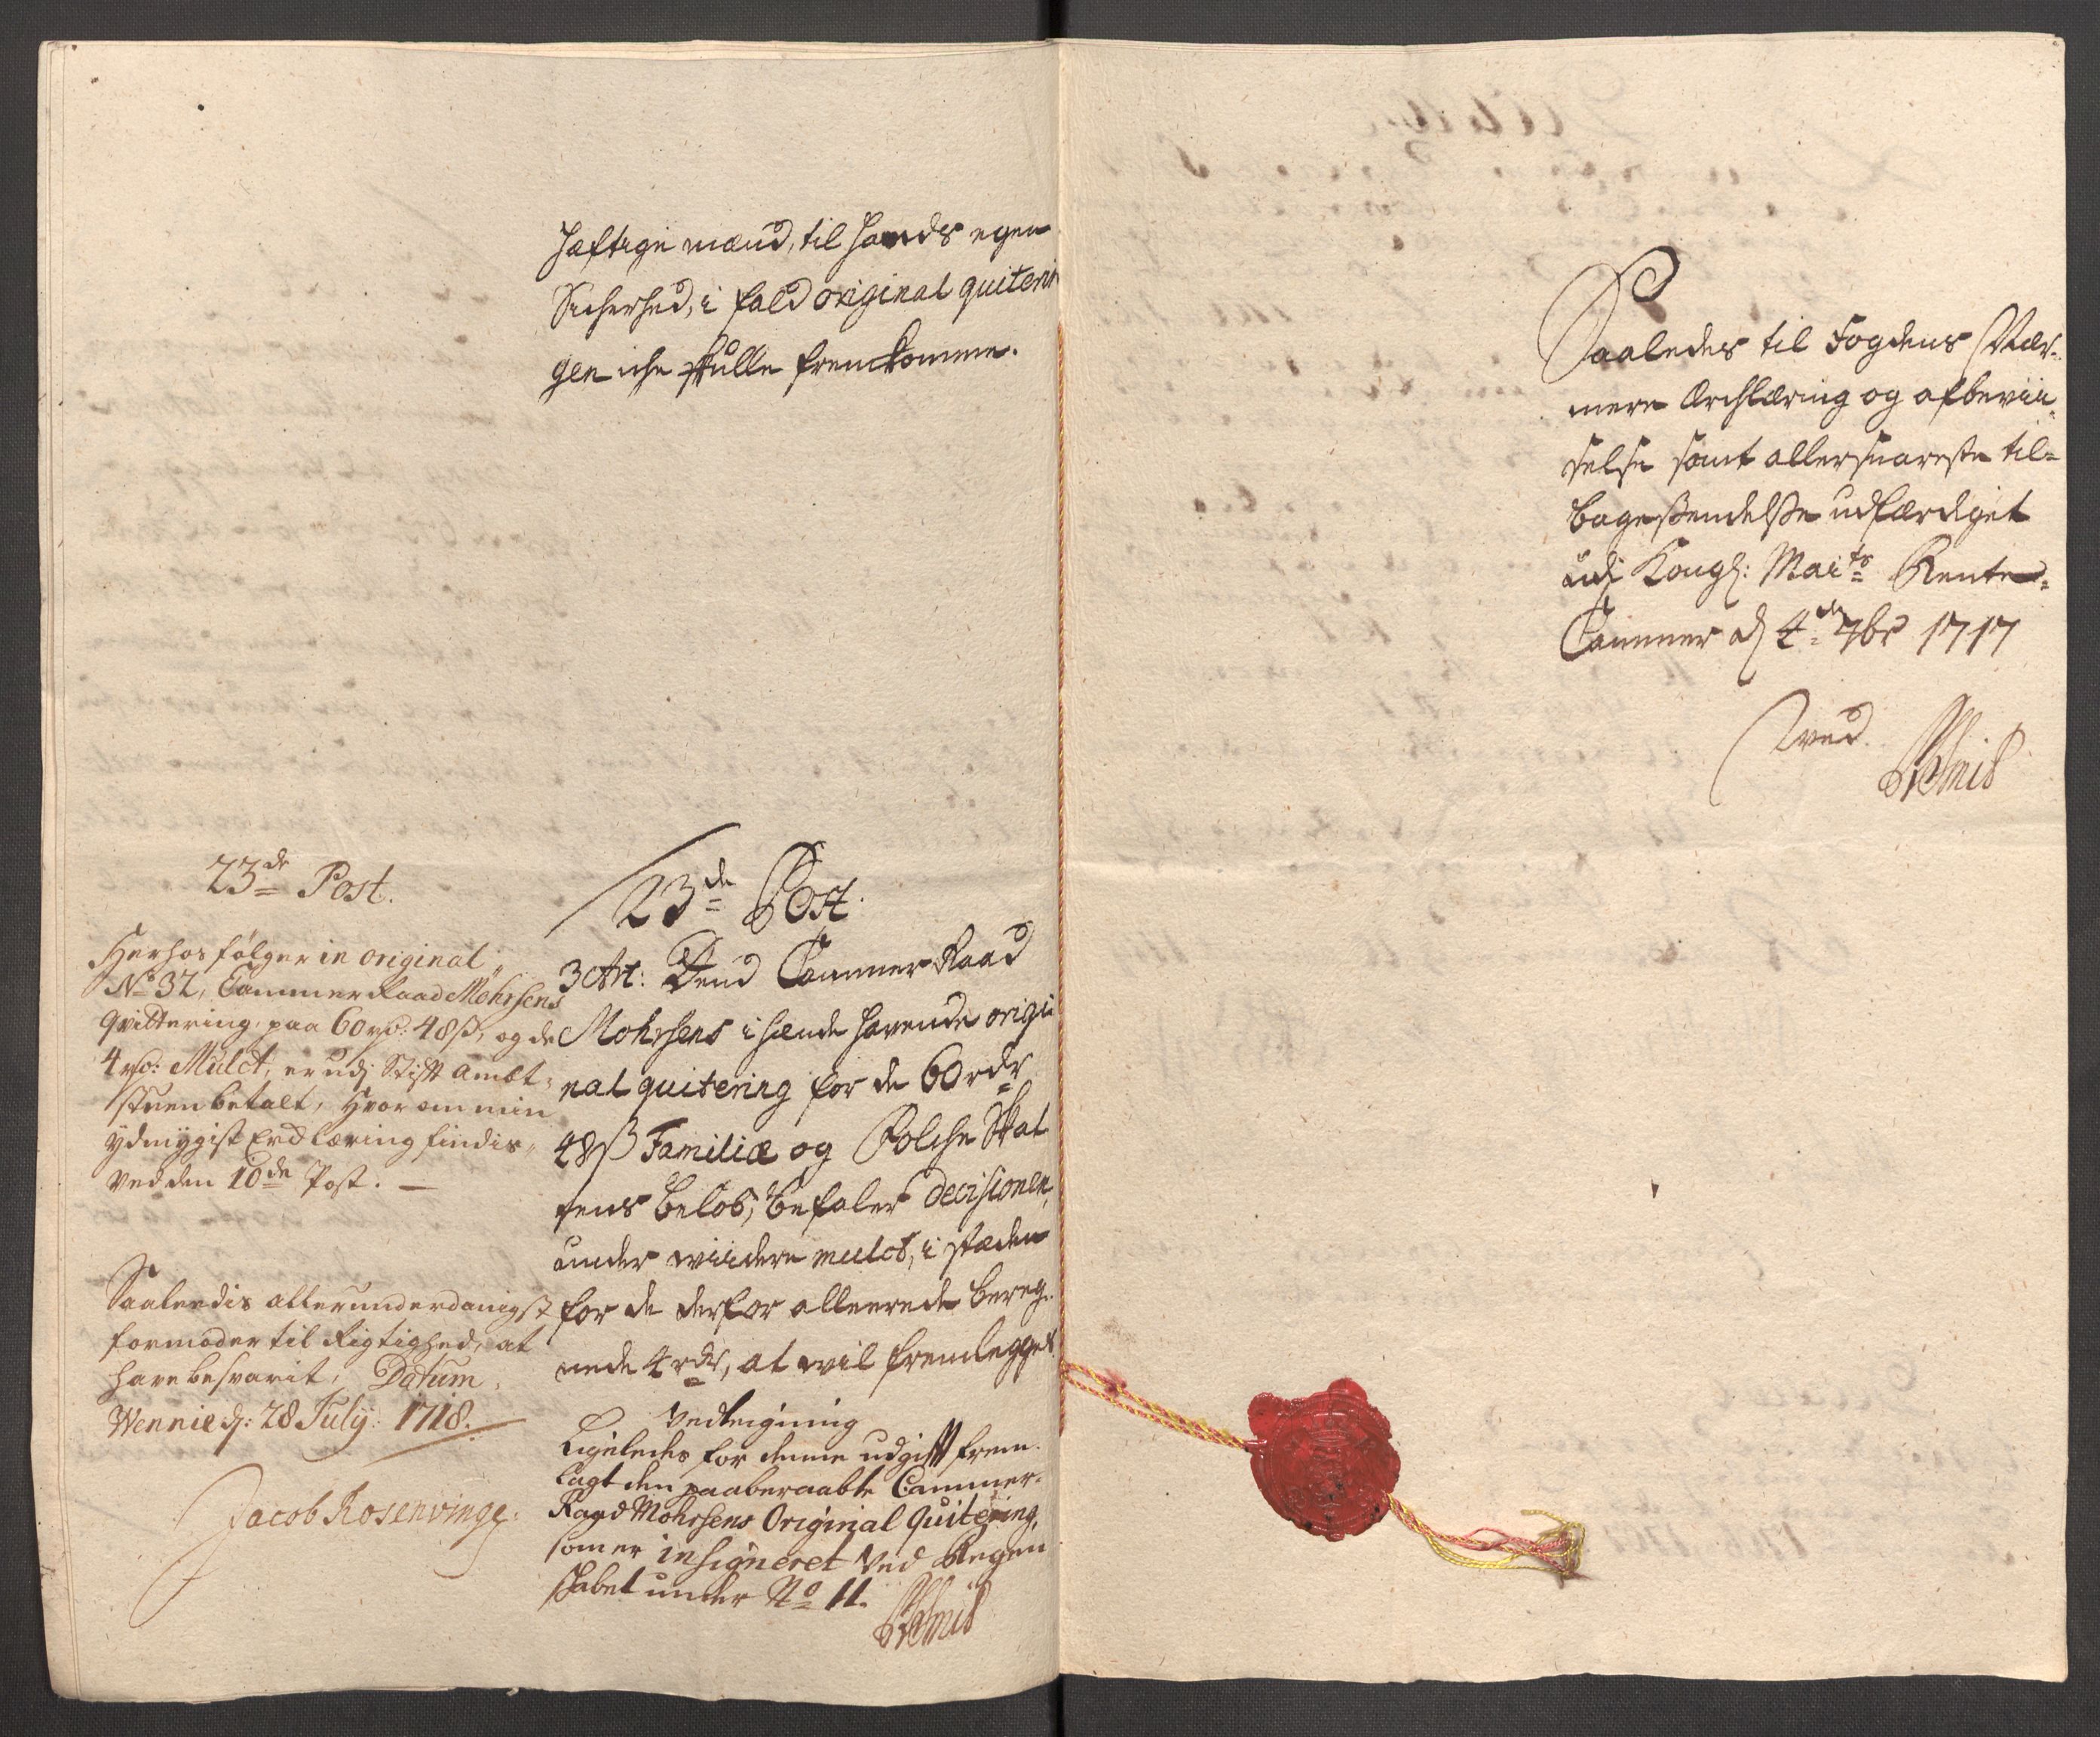 hæftige mænd, til hands egen
Sicherhed, i fald original quiterin
gen iche skulle fremkomme.
23de Post.
Herhos følger in original
No 32, Cammer Raad Mohrsens
qvittering, paa 60 rd: 48 ß, og de
4 rd: Mulct, er udj Stift Ambt-
stuen betalt, hvor om min
ydmygist Erclæring findis
ved den 10de Post. —
Saaleedis allerunderdanigst
formoder til Rigtighed, at
have besvarit, Datum
Wennie d: 28 July: 1718.
Jacob Rosenvinge.
23de Post.
3 Art: Dend Cammer Raad
Mohrsens i hænde havende origi
nal quitering for de 60 rdr
48 ß Familiæ og Folche Skat
tens beløb, befaler decisionen,
under wiidere mulct, i stæden
for de derfor allerede bereg-
nede 4 rdr, at wil fremlegges.
Vedtegning
Ligeledes for denne udgift frem-
lagt den paaberaabte Cammer-
Raad Mohrsens Original Quitering,
som er insigneret ved Regen
skabet under No 11.
Saaledes til Fogdens Nær-
mere Erchlæring og afbevii-
selse samt allersnareste til-
bagesendelse udfærdiget
udj Kongl: Maits Rente-
Cammer d 4de 7br 1717
ved